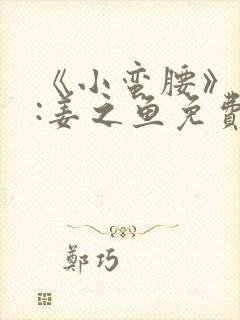 《小蛮腰》
:姜之鱼免費
鄭巧